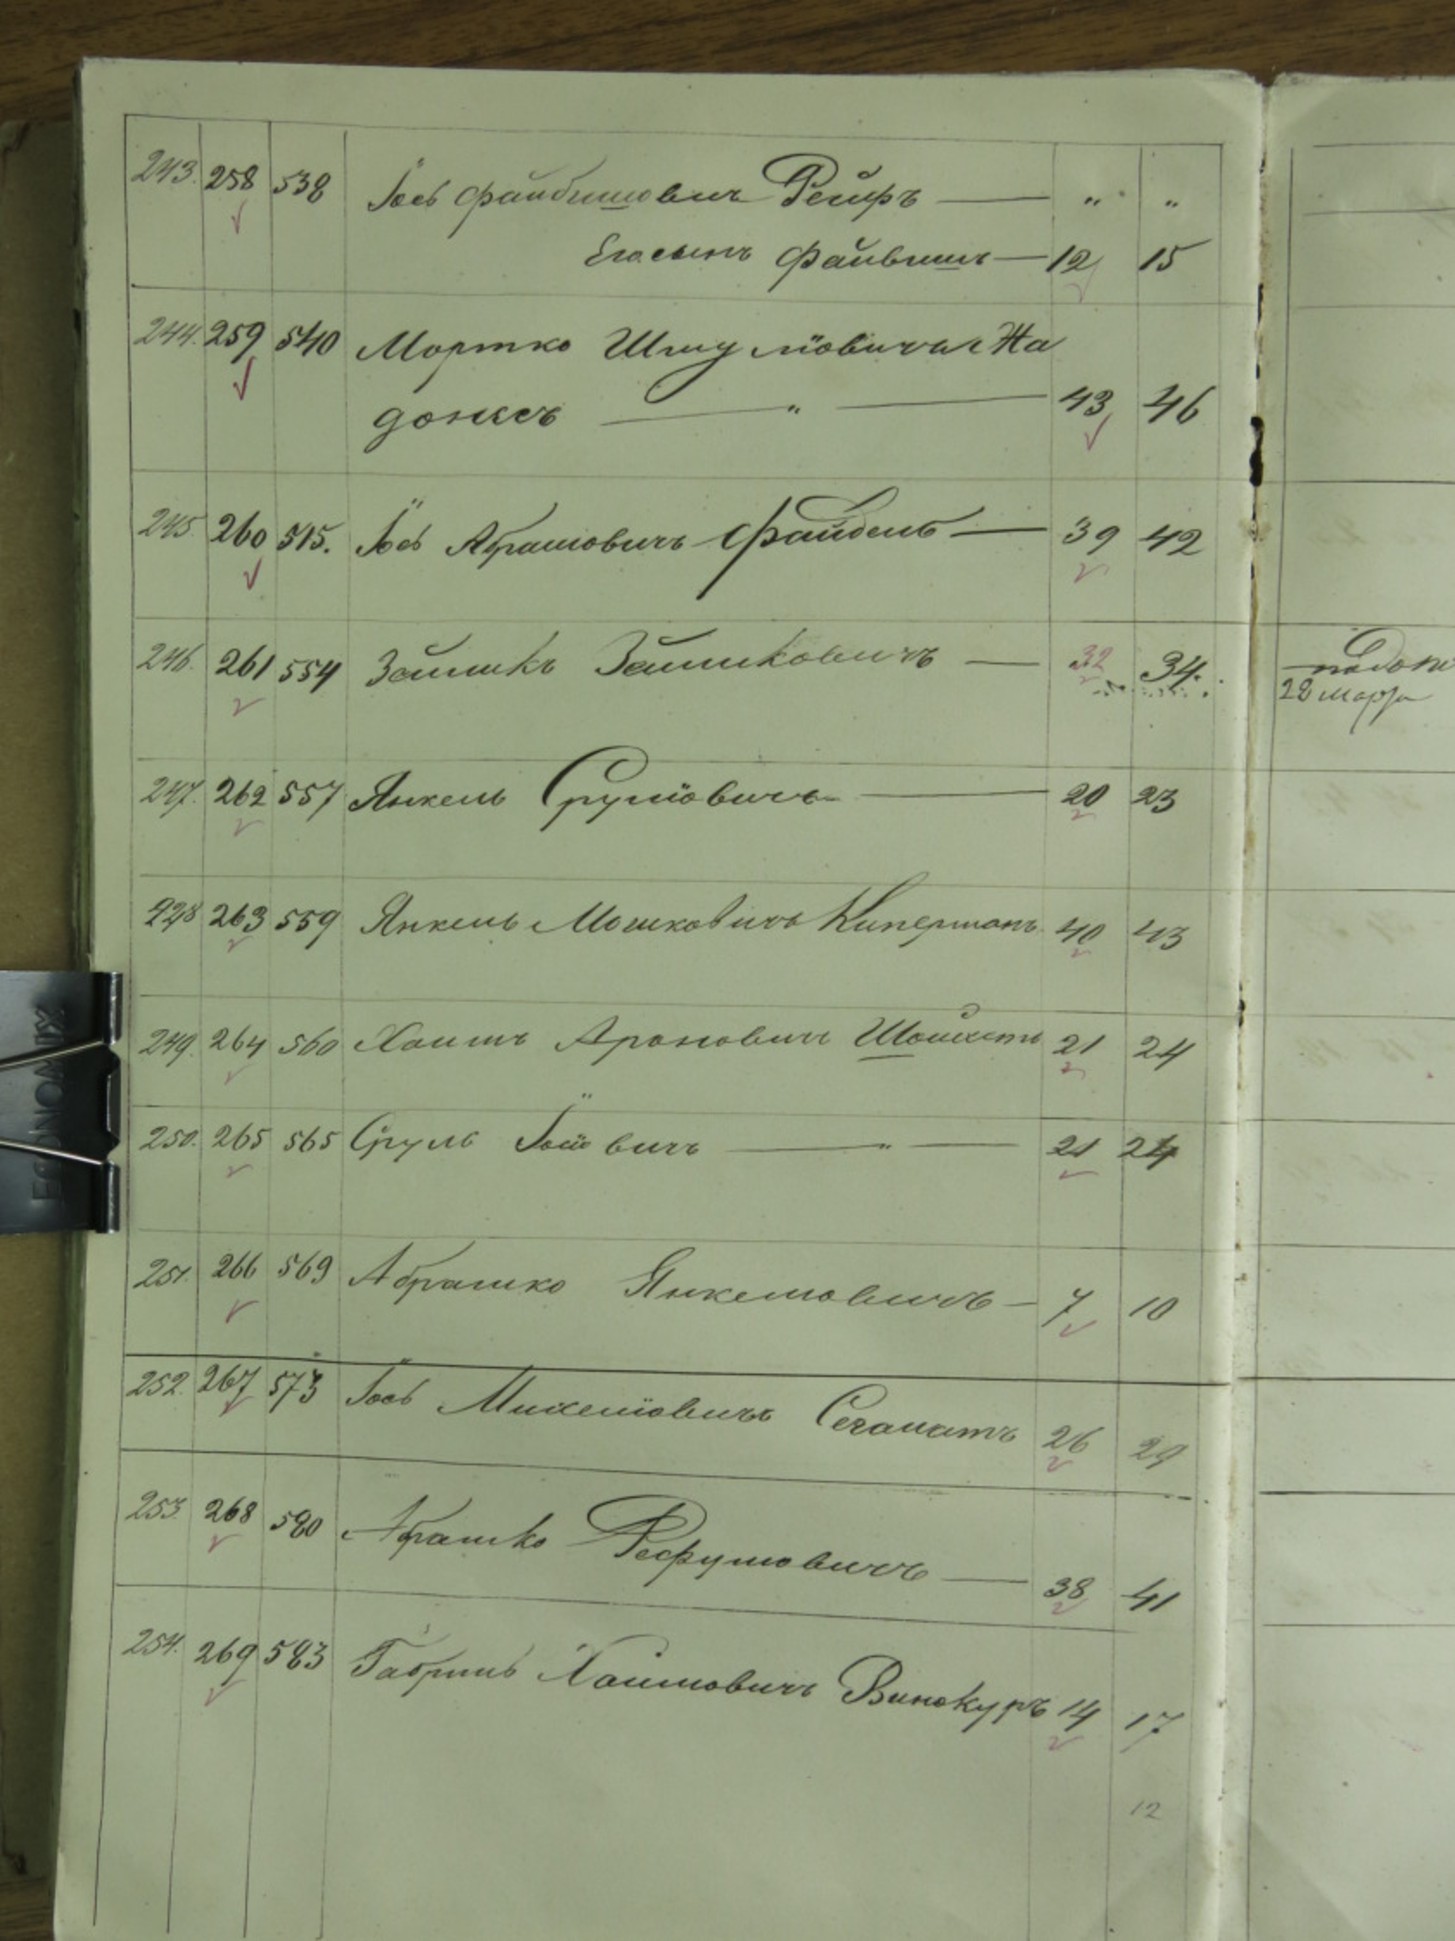 243. 258 538 Іось Файбишовичъ Рейфъ — " "
Его сынъ Файвишъ — 12 15
244. 259 540 Мортко Шмулiовичъ На
донжсъ — " — 43 46
245 260 515. Іось Абрамовичъ Файбель — 39 42
246. 261 554 Зеликъ Зеликовичъ — 32 34.
28 марта
247. 262 557 Янкель Срулiовичъ — 20 23
248 263 559 Янкель Мошковичъ Киперманъ 40 43
249. 264 560 Хаимъ Ароновичъ 21 24
250. 265 565 Сруль Іосiовичъ — " — 21 24
251. 266 569 Абрамко Янкелiовичъ — 7 10
252. 267 573 Іось Михелiовичъ 26 29
253. 268 580 Абрамко Рефулiовичъ — 38 41
254. 269 583 Габрiль Хаимовичъ Винокуръ 14 17
12
ECONOMIX